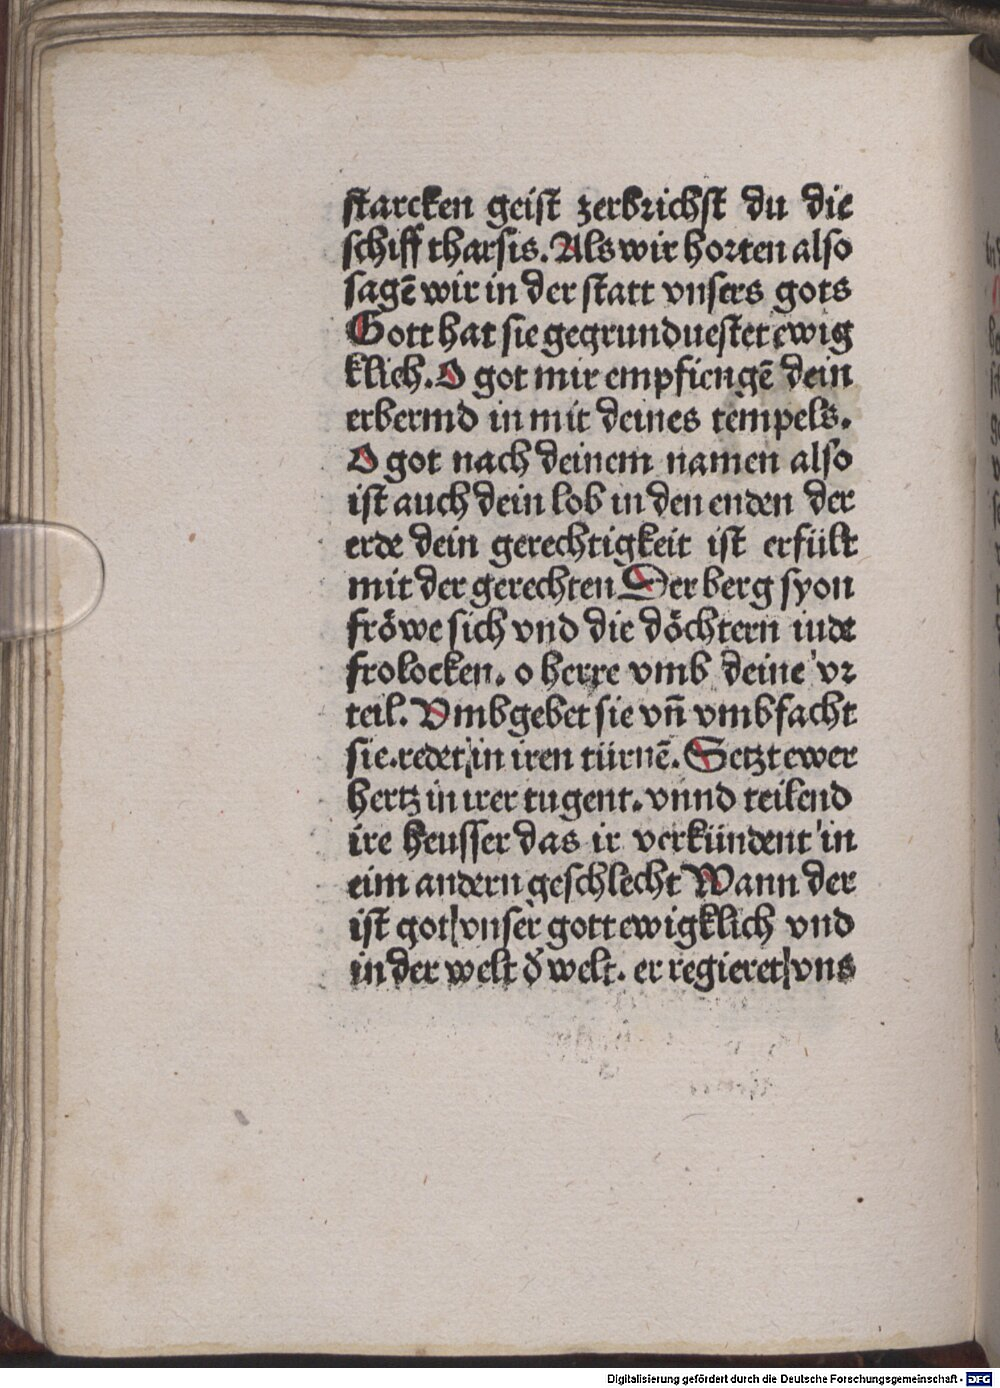 starcken geist zerbrichst du die
schiff tharsis. Als wir horten also
sagē wir in der statt vnsers gots
Gott hat sie gegrunduestet ewig
klich. O got mir empfiengē dein
erbermd in mit deines tempels.
O got nach deinem namen also
ist auch dein lob in den enden der
erde dein gerechtigkeit ist erfült
mit der gerechten Der berg syon
fröwe sich vnd die döchtern iude
frolocken. o herre vmb deine vr
teil. Vmbgebet sie vn̄ vmbfacht
sie. redet in iren türnē. Setzt ewer
hertz in irer tugent. vnnd teilend
ire heusser das ir verkündent in
eim andern geschlecht Wann der
ist got vnser gott ewigklich vnd
in der welt d̕ welt. er regieret vns
Digitalisierung gefördert durch die Deutsche Forschungsgemeinschaft - DFG